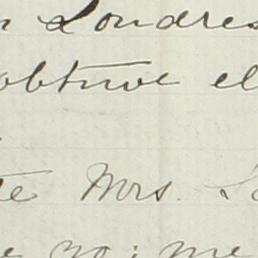 n Londres
obtuve el
te Mrs. S
e yo; me